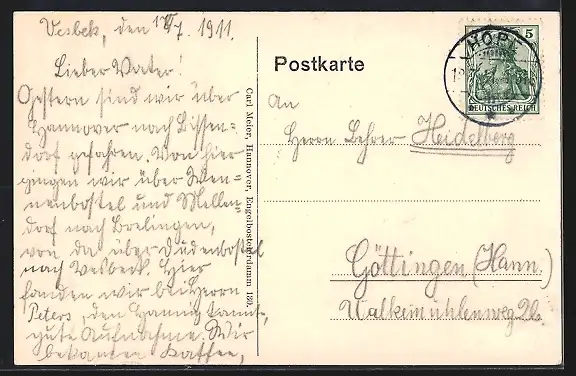 Vesbek, den 17/7. 1911.
Lieber Vater!
Gestern sind wir über
Hannover nach Bissen=
dorf gefahren. Von hier
gingen wir über Wen=
nenbostel und Mellen
dorf nach Brelingen,
von da über Dudenbostel
nach Vesbeck. Hier
fanden wir bei Herrn
Peters, den Henny kannte,
gute Aufnahme. Wir
bekamen Kaffee,
Carl Meier, Hannover, Engelbostelerdamm 139.
Postkarte
HOP
5
DEUTSCHES REICH
An
Herrn Lehrer Heidelberg
Göttingen (Hann.)
Walkemühlenweg 2b.